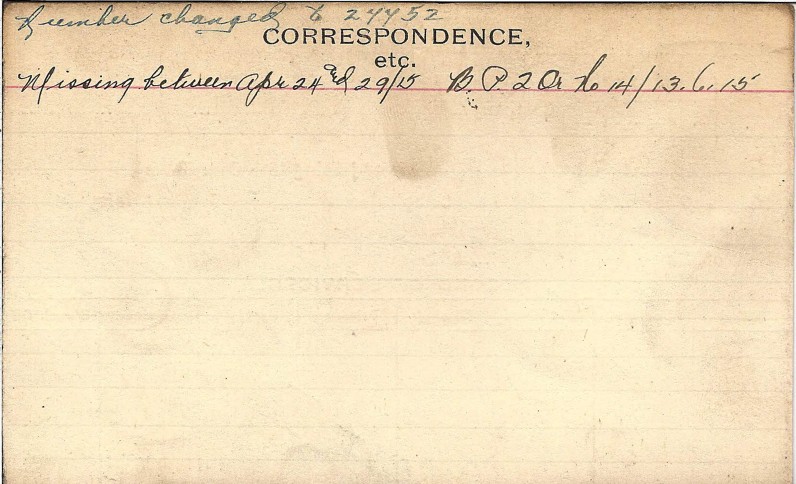 Number changed to 24452
CORRESPONDENCE,
etc.
Missing between Apr 24 and 29/15 B. P. 2 Or No 14/13.6.15